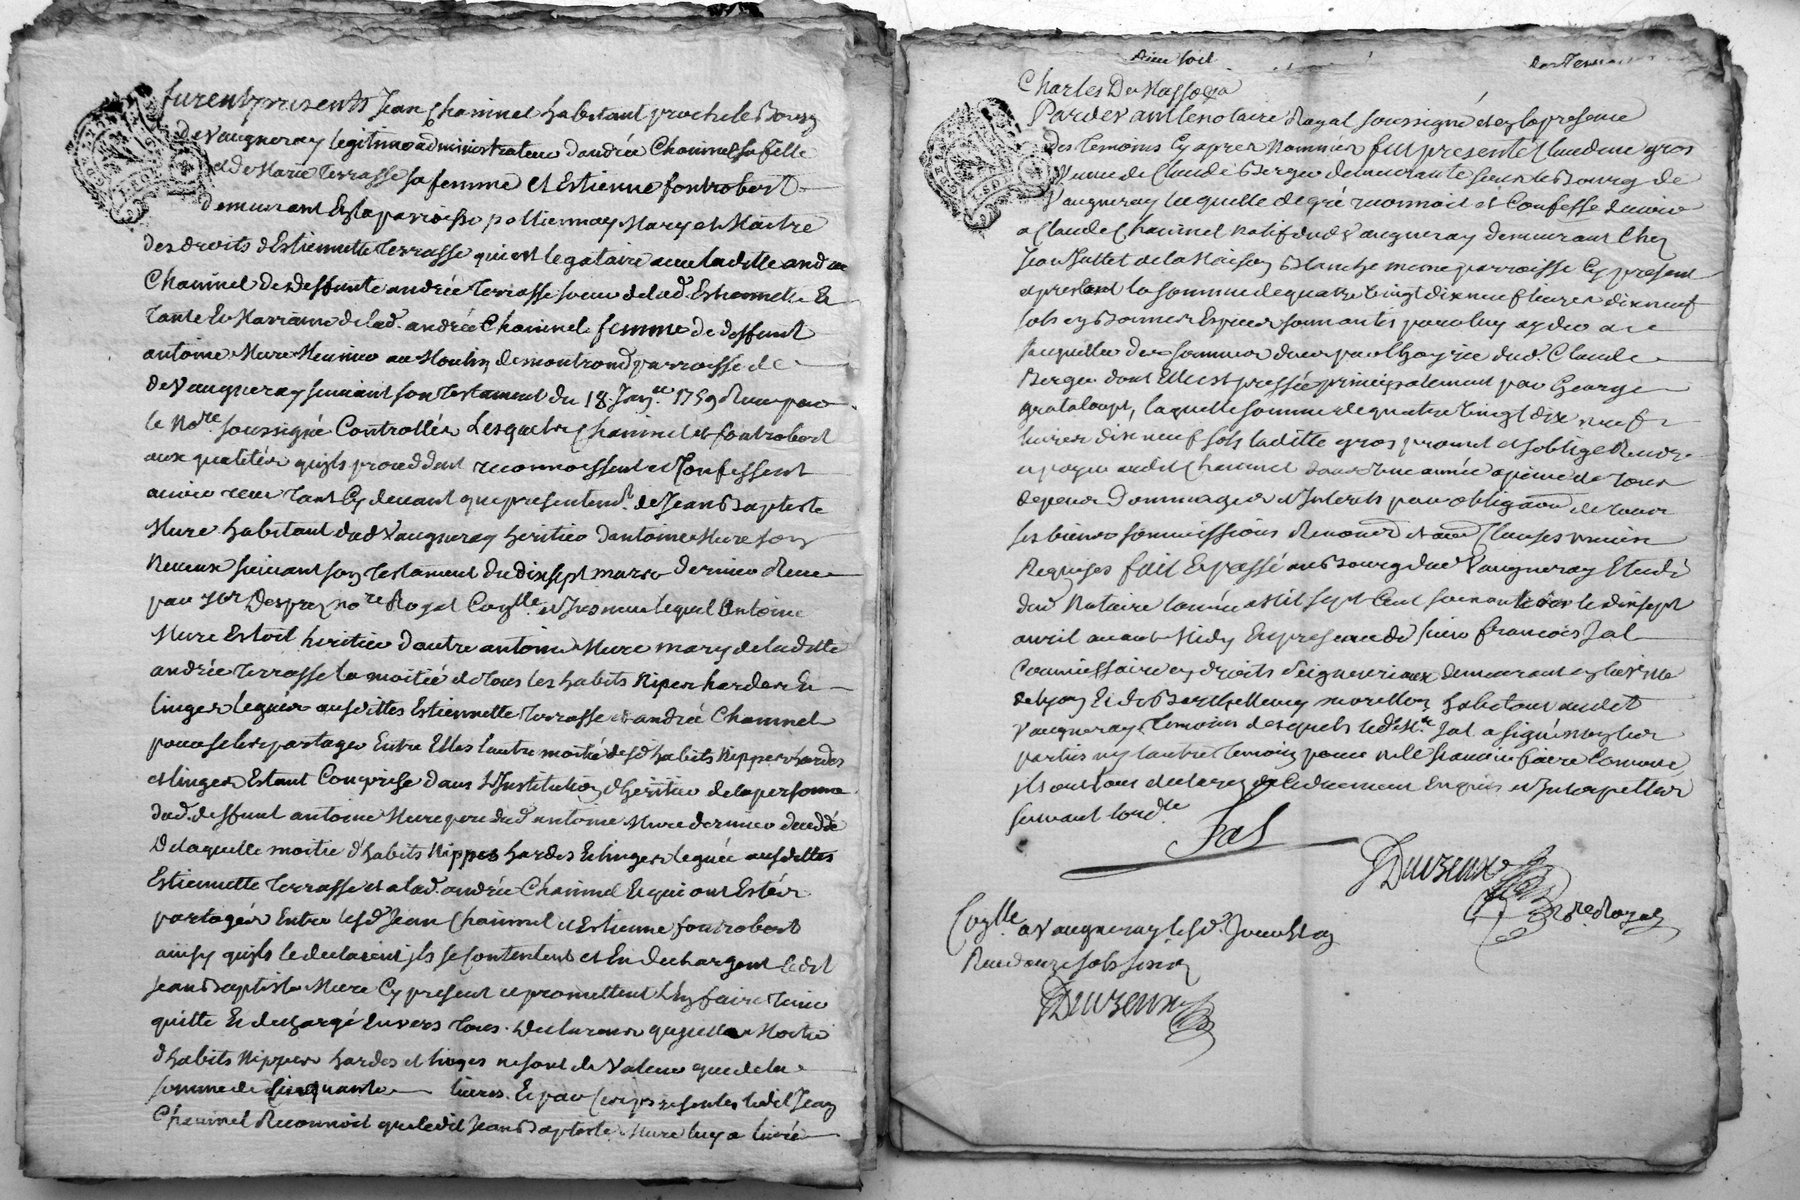 furent presents Jean Chaninel habitant proche le Bourg
de Vaugneray legitime administrateur d'andrée Chaninel sa fille
et de Marie Terrasse sa femme et Estienne fontrobert
demeurant en la parroisse pollionnay Mary et Maitre
des droits d'Estiennette Terrasse qui est legataire avec laditte andrée
Chaninel de deffunte andrée Terrasse soeur de lad. Estiennette Et
tante Et Marraine de lad. andrée Chaninel femme de deffunt
antoine Mure Meunier au Moulin de montrond parroisse de
de Vaugneray suivant son testament du 18 Janv. 1759 Receu par
le No.re soussigné Controllé, Lesquels Chaninel et fontrobert
aux qualités qu'ils procedent reconnoissent et Confessent
avoir receu tant Cy devant que presentem.t de Jean Baptiste
Mure habitant dud Vaugneray heritier d'antoine Mure son
Neveux suivant son testament du dixsept mars dernier Receu
par Desprez no.re Royal Con.lle et Insinué lequel Antoine
Mure Estoit heritier d'autre antoine Mure mary de laditte
andrée Terrasse la moitié de tous les habits Nipes hardes Et
linges legués ausdittes Estiennette Terrasse et andrée Chaninel
pour se les partager Entre Elles l'autre moitié desd habits Nippes hardes
et linges Estant Comprise dans L'Institution d'heritier de la personne
dud. deffunt antoine Mure pere dud antoine Mure dernier decedé
De laquelle moitié d'habits Nippes hardes Et linges leguée ausdittes
Estiennette Terrasse et a lad. andrée Chaninel Et qui ont Estés
partagés Entre lesd Jean Chaninel et Estienne fontrobert
ainsy qu'ils le declarent ils se contentent et En dechargent ledit
Jean Baptiste Mure Cy present et promettent l'En faire tenir
quitte Et dechargé Envers tous. declarant que laditte Moitié
d'habits Nippes hardes et linges ne sont de Valeur que de la
somme de Cinquante livres. Et par Ces presentes ledit Jean
Chaninel Reconnoit que ledit Jean Baptiste Mure luy a livré
Dieu soit
Charles De Massoza
Pardevant le notaire Royal soussigné et en la presence
des temoins Cy apres Nommés fut presente Claudine gros
Veuve de Claude Berger demeurante sur le Bourg de
Vaugneray laquelle de gré reconnoit et Confesse devoir
a Claude Chaninel natif dud Vaugneray demeurant Chez
Jean Nallet de la Maison Blanche meme parroisse Cy present
et acceptant la somme de quatre vingt dix neuf livres dix neuf
sols en Bonnes Especes sonnantes pour luy ayder a
Jacquitter des sommes dues par l'hoyrie dud Claude
Berger dont Elle est pressée principalement par George
grataloup, laquelle somme de quatre vingt dix neuf
livres dix neuf sols laditte gros promet et s'oblige Rendre
et payer audit Chaninel dans une année a peine de tous
depens Dommages et Interets par obligaon de tous
ses biens soumissions Renonc. et aux Clauses
Requises fait Et passé au Bourg dud Vaugneray Etude
dud Notaire l'année Mil sept Cent soixante le dixsept
avril avant Midy En presence de sieur francois Jal
Commissaire en droits seigneuriaux demeurant en la Ville
de Lyon Et de Barthelemy morillon habitant audit
Vaugneray temoins desquels led. M. Jal a signé non les
parties ny l'autre temoin pour ne le scavoir faire Comme
ils ont tous declaré de ce duement Enquis et Interpellés
suivant l'ord.ce
Jal
Duvzeux
N.re Royal
Con.lle a Vaugneray le sd. Jour
Receu douze sols six
Duvzeux